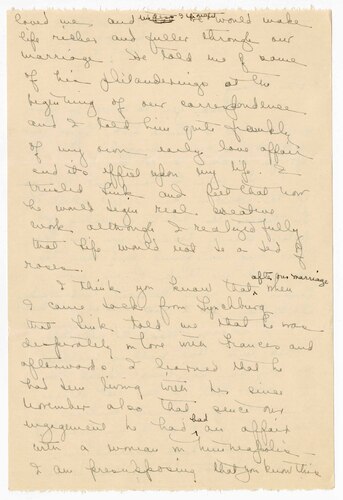 loved me and he would make
life richer and fuller through our
marriage. He told me of some
of his philanderings at the
beginning of our correspondence
and I told him quite frankly
of my own early love affair
and its effect upon my life. I
trusted Link and felt that now
he would begin real creative
work although I realized fully
that life would not be a bed of
roses.
I think you know that after our marriage when
I came back from Lynchburg
that Link told me that he was
desperately in love with Frances and
afterwards I learned that he
had been living with her since
November also that since our
engagement he had had an affair
with a woman in Minneapolis.
I am presupposing that you know this